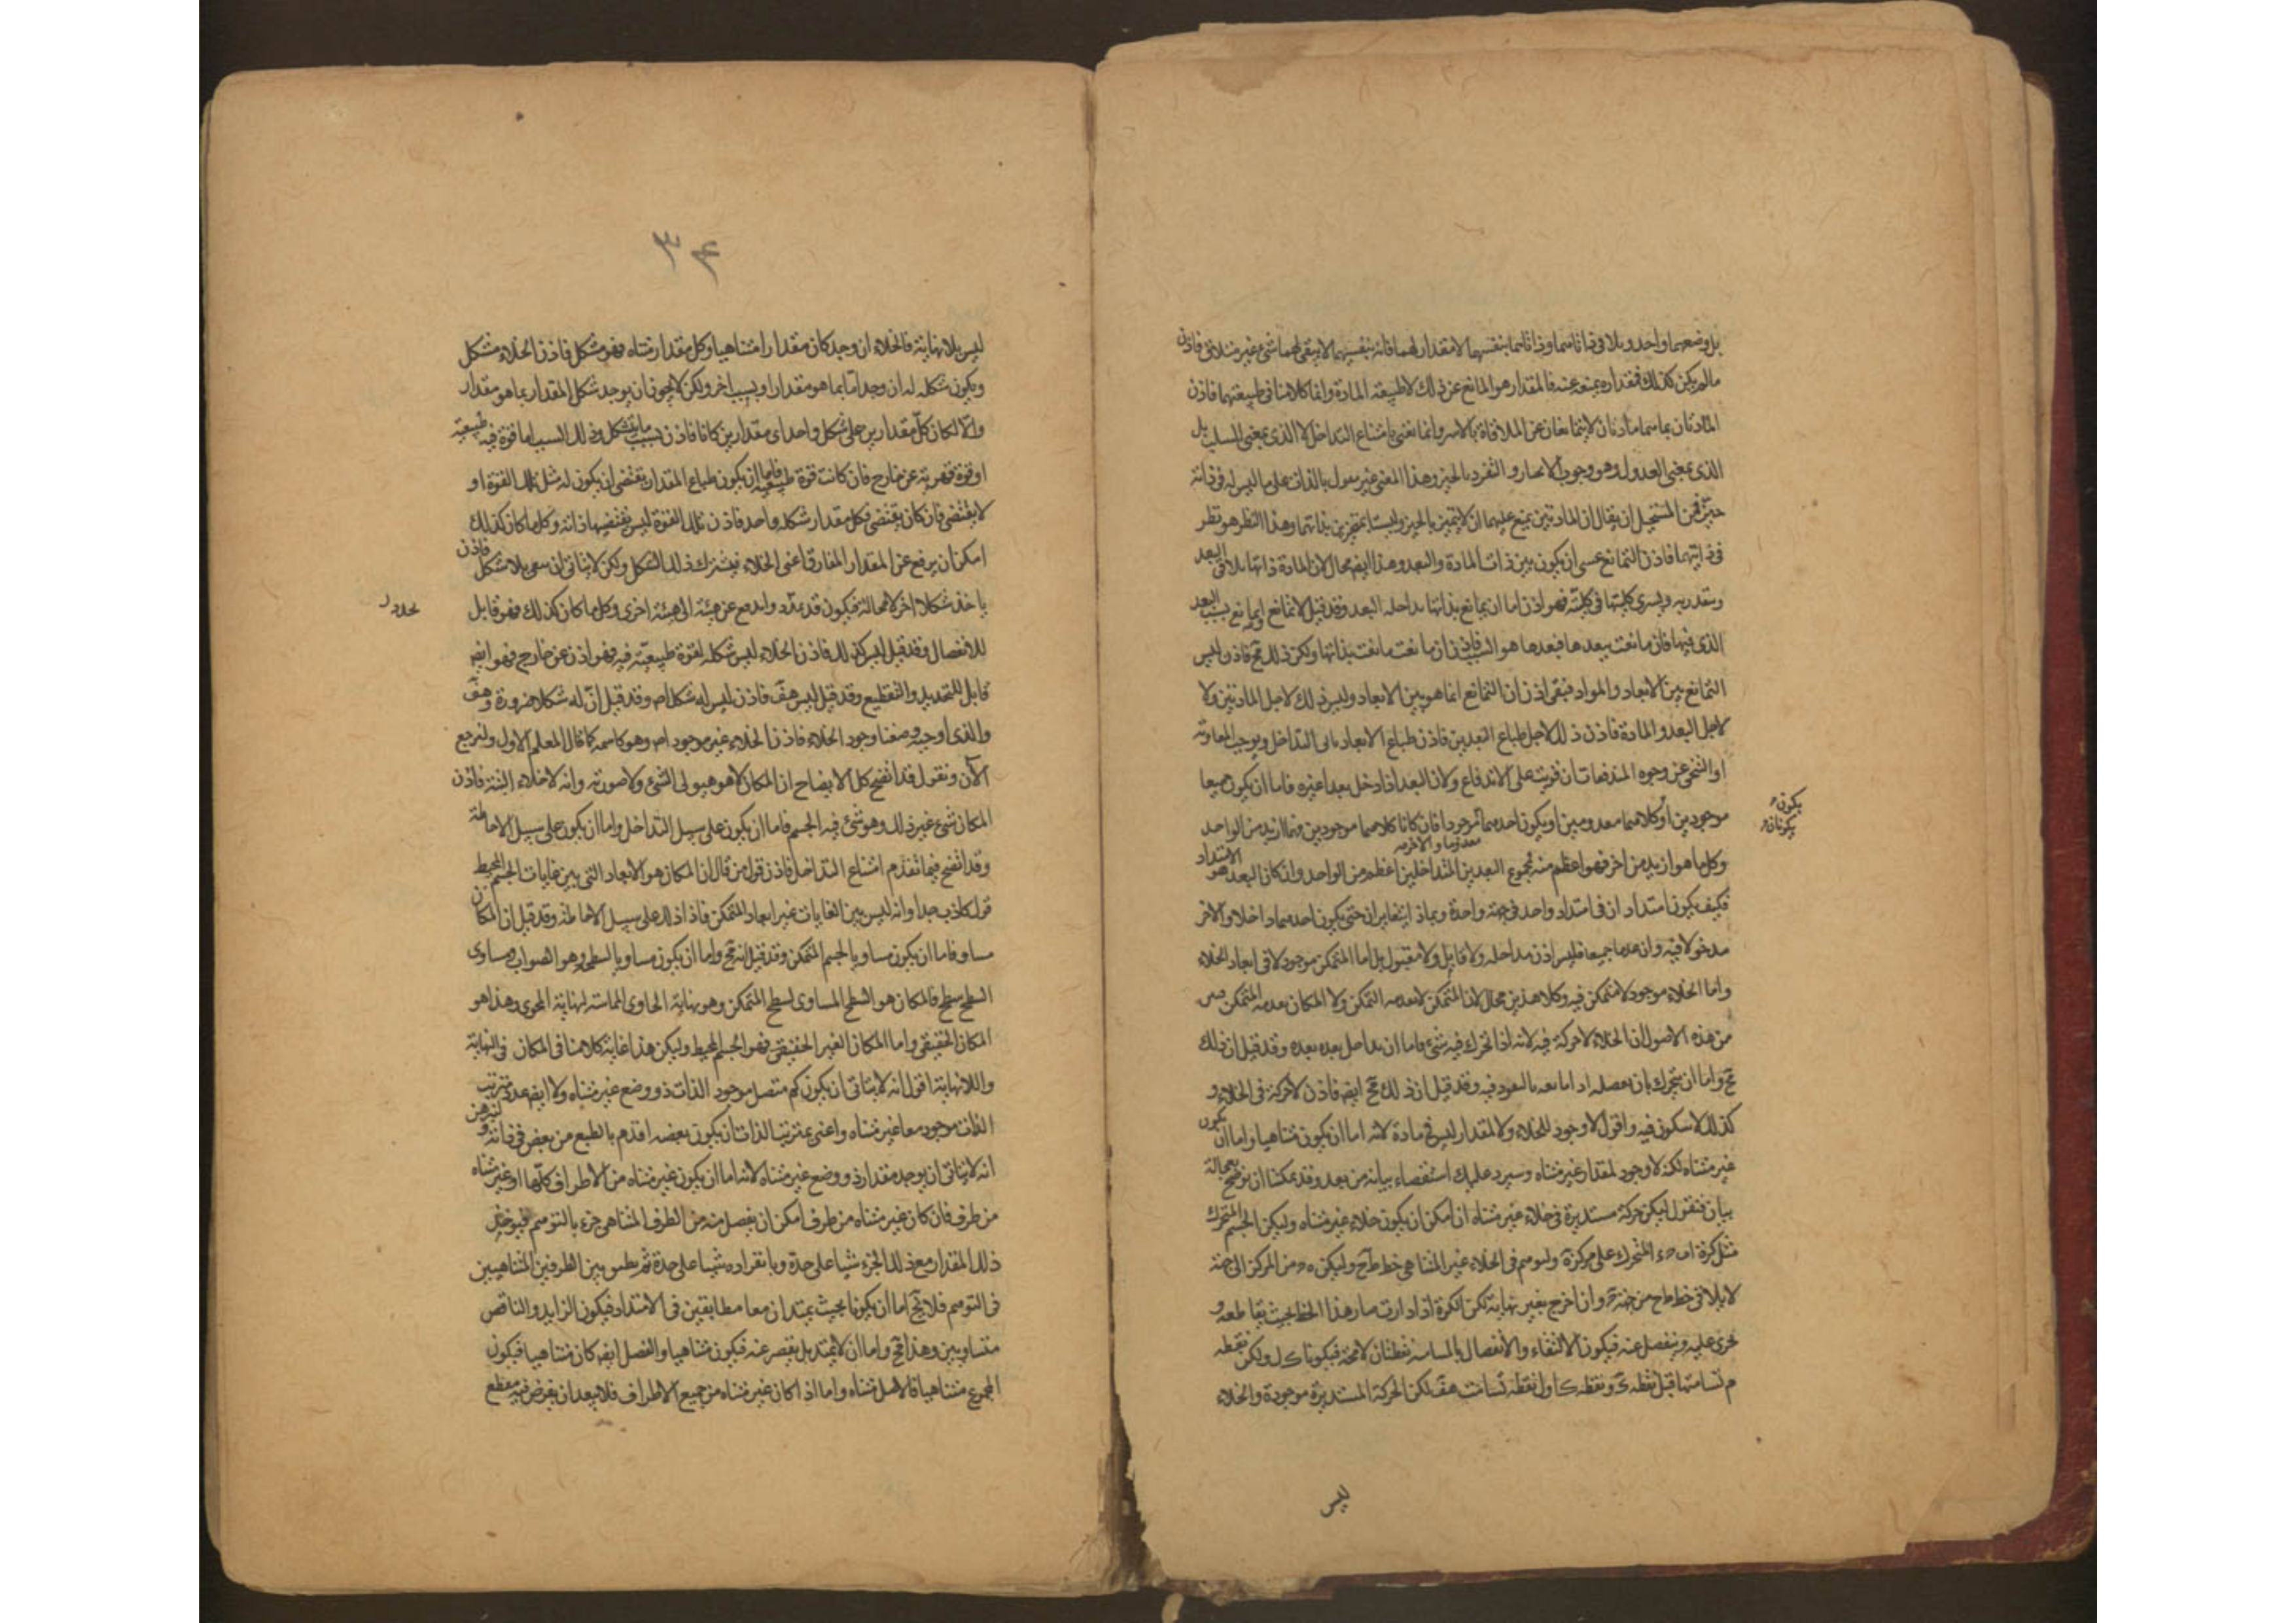 بل وضعهما واحد ويلاقى ذاتاهما وذاتاهما بنفسهما لا مقدار لهما فانه بنفسهما لا يبقى لهما شئ غير متلاق فاذن
مالم يكن كذلك فمقداره يمنعه عنه فالمقدار هو المانع عن ذلك لا طبيعة المادة وانما كلامنا فى طبيعتهما فاذن
المادتان بما هما مادتان لا يتمانعان عن الملاقاة بالاسر وانما نعنى بامتناع التداخل لا الذى بمعنى السلب بل
الذى بمعنى العدول وهو وجوب الانحياز والتفرد بالحيز وهذا المعنى غير مقول بالذات على ما ليس له فى ذاته
حيّز فمن المستحيل ان يقال ان المادتين يمتنع عليهما ان لا يتميز بالحيز وليستا بمتحيزين بذاتهما وهذا النظر هو نظر
فى ذاتيهما فاذن التمانع عسى ان يكون بين ذات المادة والبعد وهذا ايضا محال لان المادة ذاتها يلاقى البعد
ويتقدر به ويسرى كليتها فى كليته فهو اذن اما ان يمانع بذاتها مداخلة البعد وقد قيل لا تمانع او يمانع بسبب البعد
الذى فيها فان مانعت ببعدها فبعدها هو السبب فاذن ان مانعت مانعت بذاتها ولكن ذلك مح فاذن ليس
التمانع بين الابعاد والمواد فبقى اذن ان التمانع انما هو بين الابعاد وليس ذلك لاجل المادتين ولا
لاجل البعد والمادة فاذن ذلك لاجل طباع البعدين فاذن طباع الابعاد يابى التداخل ويوجب المقاومة
او التنحى عن وجوه المندفعات ان قويت على الاندفاع ولان البعد اذا دخل بعدا غيره فاما ان يكون جميعا
يكون
يكونان
موجودين او كلاهما معدومين او يكون احدهما موجودا فان كانا كلاهما موجودين فهما ازيد من الواحد
معدوما والاخر
وكل ما هو ازيد من اخر فهو اعظم منه فمجموع البعدين المتداخلين اعظم من الواحد واذ كان البعد هو الامتداد
فكيف يكون امتدادان فى امتداد واحد فى جهة واحدة وبماذا يتغايران حتى يكون احدهما داخلا والاخر
مدخولا فيه وان عدما جميعا فليس اذن مداخلة ولا قابل ولا مقبول بل اما المتمكن موجود لا فى ابعاد الخلاء
واما الخلاء موجود لا متمكن فيه وكلا هذين محال لان المتمكن لا يعدمه التمكن ولا المكان يعدمه المتمكن
من هذه الاصول ان الخلاء لا حركة فيه لانه اذا تحرك فيه شئ فاما ان يداخل بعده بعده وقد قيل ان ذلك
مح واما ان يتحرك بان يفصله فيه وقد قيل ان ذلك مح ايضا فاذن لا حركة فى الخلاء و
كذلك لا سكون فيه واقول لا وجود للخلاء ولا لمقدار ليس فى مادة لانه اما ان يكون متناهيا واما ان يكون
غير متناه لكنه لا وجود لمقدار غير متناه وسيرد عليك استقصاء بيانه من بعد وقد يمكننا ان نوضح بعجالة
بيان فنقول ليكن حركة مستديرة فى خلاء غير متناه ان امكن ان يكون خلاء غير متناه وليكن الجسم المتحرك
مثل كرة المتحرك على مركزه وليتوهم فى الخلاء الغير المتناهى خط طح وليكن من المركز الى جهة
لا يلاقى خط طح من جهة وان اخرج بغير نهاية لكن الكرة اذا دارت صار هذا الخط بحيث يقاطعه و
يجرى عليه وينفصل عنه فيكون الالتقاء والانفصال بالمسامتة نقطتان لا محة فيكونا ك ل ولكن نقطه
م تسامتها قبل نقطه ك ونقطه ك اول نقطه تسامت هف لكن الحركة المستديرة موجودة والخلاء
ليس
٣٤
ليس بلا نهاية فالخلاء ان وجد كان مقدارا متناهيا وكل مقدار متناه فهو مشكل فاذن الخلاء مشكل
ويكون شكله له ان وجد اما بما هو مقدار او بسبب اخر ولكن لا يجوز ان يوجد شكل المقدار بما هو مقدار
والا لكان كل مقدارين على شكل واحد اى مقدارين كانا فاذن بسبب ما يتشكل وذلك السبب اما قوة فيه طبيعية
او قوة قهرية عن خارج فان كانت قوة طبيعية فاما ان يكون طباع المقدار يقتضى ان يكون له مثل تلك القوة او
لا يقتضى فان كان يقتضى فكل مقدار شكله واحد فاذن تلك القوة ليس يقتضيها ذاته وكل ما كان كذلك
امكن ان يرفع عن المقدار المفارق اعنى الخلاء فيترك ذلك الشكل ولكن لا يتاتى ان يبقى بلا شكل فاذن
ياخذ شكلا اخر لا محالة فيكون قد تمدد واندفع عن هيئة الى هيئة اخرى وكل ما كان كذلك فهو قابل
للانفصال وقد قيل ليس كذلك فاذن الخلاء ليس شكله لقوة طبيعية فيه فهو اذن عن خارج فهو ايضا
قابل للتحديد والتقطيع وقد قيل ليس هف فاذن ليس له شكل اصلا وقد قيل ان له شكلا ضرورة وهف
والذى اوجبه وضعنا وجود الخلاء فاذن الخلاء غير موجود اصلا وهو كاسمه كما قال المعلم الاول ولنرجع
الآن ونقول قد اتضح كل الايضاح ان المكان لا هو هيولى الشئ ولا صورته وانه لا خلاء البتة فاذن
المكان شئ غير ذلك وهو شئ فيه الجسم فاما ان يكون على سبيل التداخل واما ان يكون على سبيل الاحاطة
وقد اتضح فيما تقدم امتناع التداخل فاذن قول من قال ان المكان هو الابعاد التى بين غايات الجسم المحيط
قول كاذب جدا وانه ليس بين الغايات غير ابعاد المتمكن فاذا ذلك على سبيل الاحاطة وقد قيل ان المكان
مساو فاما ان يكون مساويا لجسم المتمكن وقد قيل انه مح واما ان يكون مساويا لسطحه وهو الصواب ومساوى
السطح سطح فالمكان هو السطح المساوى لسطح المتمكن وهو نهاية الحاوى المماسة لنهاية المحوى وهذا هو
المكان الحقيقى واما المكان الغير الحقيقى فهو الجسم المحيط وليكن هذا غاية كلامنا فى المكان فى النهاية
واللانهاية اقول انه لا يتاتى ان يكون كم متصل موجود الذات ذو وضع غير متناه ولا ايضا عدد مترتب
الذات موجود معا غير متناه واعنى بمترتب الذات ان يكون بعضه اقدم بالطبع من بعض فى ذاته ولنبرهن
انه لا يتاتى ان يوجد مقدار ذو وضع غير متناه لانه اما ان يكون غير متناه من الاطراف كلها او غير متناه
من طرف فان كان غير متناه من طرف امكن ان يفصل منه من الطرف المتناهى جزء بالتوهم فيوخذ
ذلك المقدار مع ذلك الجزء شيئا على حدة وبانفراده شيئا على حدة ثم نطبق بين الطرفين المتناهيين
فى التوهم فلا يخ اما ان يكونا بحيث يمتدان معا مطابقين فى الامتداد فيكون الزايد والناقص
متساويين وهذا مح واما ان لا يمتد بل يقصر عنه فيكون متناهيا والفصل ايضا كان متناهيا فيكون
المجموع متناهيا فالاصل متناه واما اذا كان غير متناه من جميع الاطراف فلا يبعد ان يفرض فيه مقطع